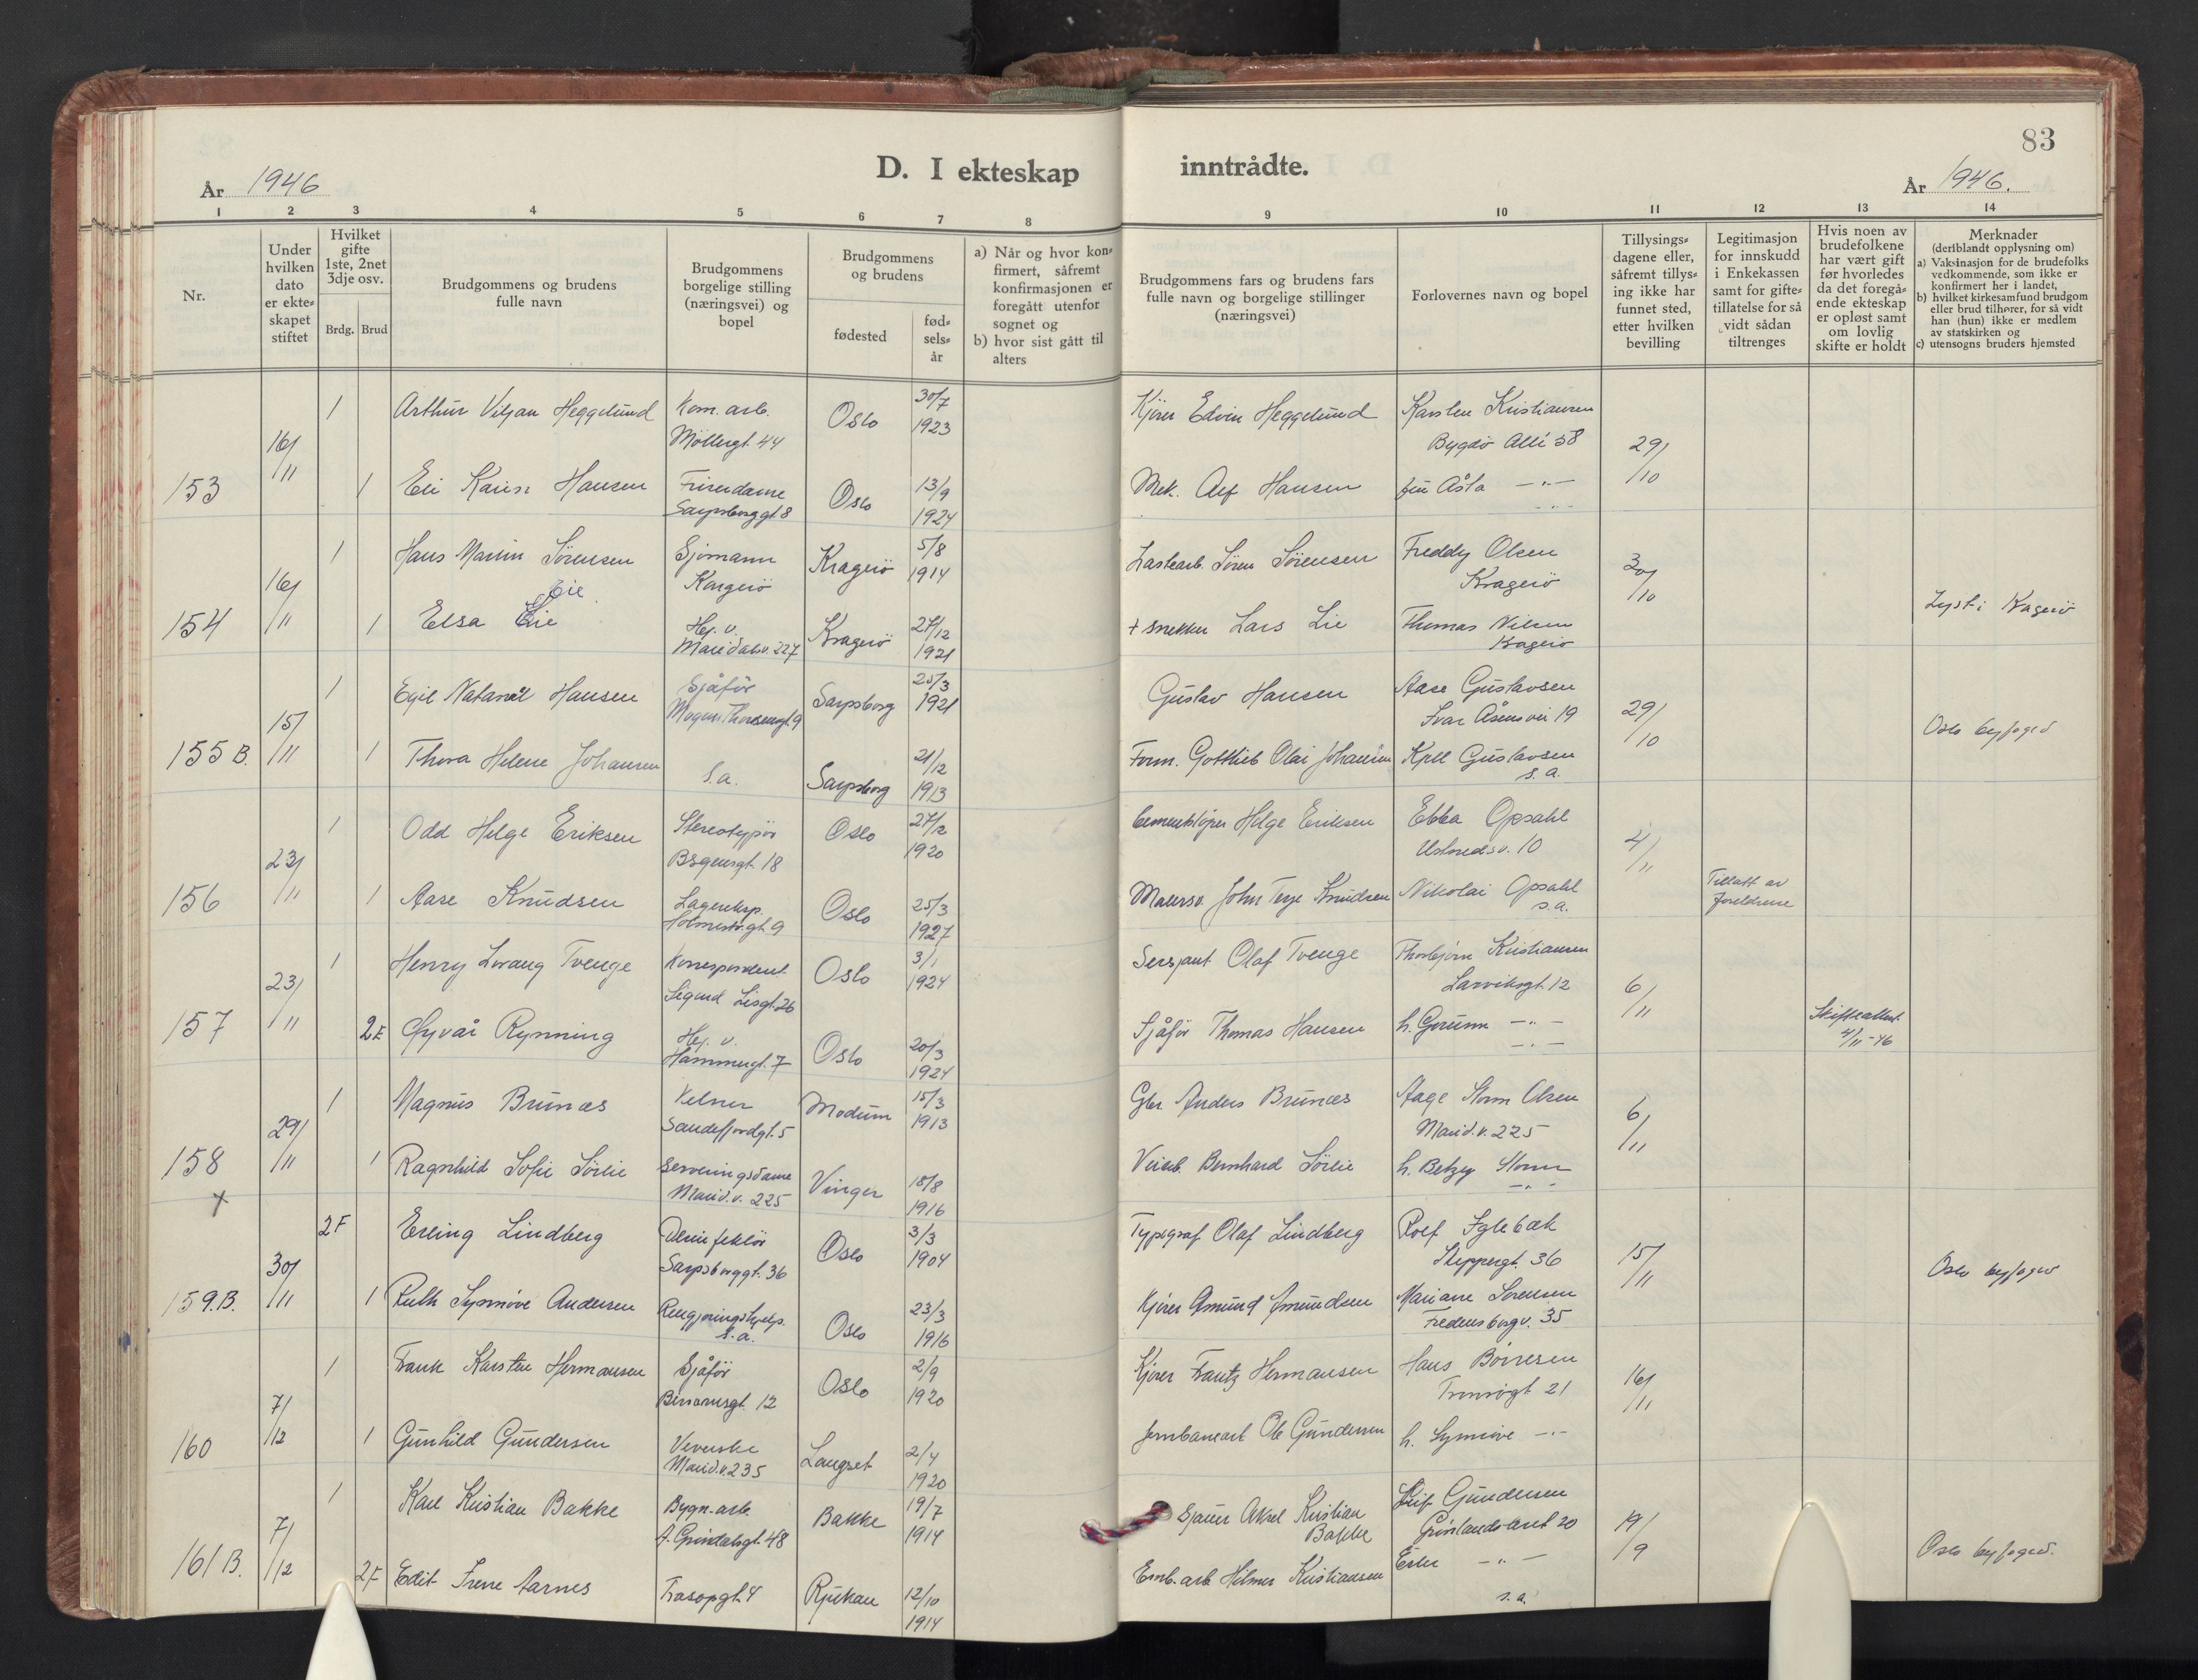 83
D. I ekteskap inntrådte.
År 1946
År 1946.
1 2 3 4 5 6 7 8 9 10 11 12 13 14
Nr.
Under hvilken dato er ekteskapet stiftet
Hvilket gifte 1ste, 2net 3dje osv.
Brdg. Brud
Brudgommens og brudens fulle navn
Brudgommens borgelige stilling (næringsvei) og bopel
Brudgommens og brudens
fødested
fødselsår
a) Når og hvor konfirmert, såfremt konfirmasjonen er foregått utenfor sognet og
b) hvor sist gått til alters
Brudgommens fars og brudens fars fulle navn og borgelige stillinger (næringsvei)
Forlovernes navn og bopel
Tillysingsdagene eller, såfremt tillysing ikke har funnet sted, etter hvilken bevilling
Legitimasjon for innskudd i Enkekassen samt for giftetillatelse for så vidt sådan tiltrenges
Hvis noen av brudefolkene har vært gift før hvorledes da det foregående ekteskap er opløst samt om lovlig skifte er holdt
Merknader
(deriblandt opplysning om)
a) Vaksinasjon for de brudefolks vedkommende, som ikke er konfirmert her i landet,
b) hvilket kirkesamfund brudgom eller brud tilhører, for så vidt han (hun) ikke er medlem av statskirken og
c) utensogns bruders hjemsted
1 Arthur Viljan Heggelund Kom. arb. Oslo 30/7 Kjører Edvin Heggelund Karsten Kristiansen
16/11 Møllergt. 44 1923 Bygdø Allé 58 29/10
153 1 Eli Karin Hansen Friserdame Oslo 13/9 Mek. Alf Hansen fru Åsta -"-
Sarpsborggt. 8 1924 -"-
1 Hans Martin Sørensen Sjømann Kragerø 5/8 Lastearb. Søren Sørensen Freddy Olsen
16/11 Kragerø 1914 Kragerø 30/10
Eie
154 1 Elsa Eie Hej. v. Kragerø 27/12 + snekker Lars Lie Thomas Nilsen Lyst i Kragerø
Maridalsv. 227 1921 Kragerø
1 Egil Natanæl Hansen Sjåfør Sarpsborg 25/3 Gustav Hansen Aase Gustavsen
15/11 Mogens Thorsensgt 9 1921 Ivar Åsens vei 19 29/10 Oslo byfoged
155 B. 1 Thora Helene Johansen s.a. Sarpsborg 21/12 Form. Gottlieb Olai Johansen Kjell Gustavsen
1913 s.a.
1 Odd Helge Eriksen Stereotypør Oslo 27/2 Cementstøper Helge Eriksen Ebba Opsahl
23/11 Bergensgt. 18 1920 Ustvedtsv. 10 4/11
156 1 Aase Knudsen Lagereksp. Oslo 25/3 Malersv. John Terje Knudsen Nikolai Opsahl Tillatt av
Holmestr.gt. 9 1927 s.a. foreldrene
1 Henry Lorang Tvenge Korrespondent Oslo 3/1 Sersjant Olaf Tvenge Thorbjørn Kristiansen
23/11 Sigurd Liegt. 26 1924 Larviksgt. 12 6/11
157 2 E Rynning Hej. v. Oslo 20/3 Sjåfør Thomas Hansen h. Gorunn -"- Skifteattest
Hammergt. 7 1924 -"- 4/11-46
1 Magnus Brunæs Kelner Modum 15/3 Gbr. Anders Brunæs Aage Storm Olsen
29/11 Sandefjordgt. 5 1913 Marid.v. 225 6/11
158 1 Ragnhild Sofie Sørlie Serveringsdame Vinger 18/8 Veiarb. Bernhard Sørlie h. Betzy Storm
x Marid.v. 225 1916 -"-
2 F Erling Lindberg Desinfektør Oslo 3/3 Typograf Olaf Lindberg Rolf Iglebæk
30/11 Sarpsborggt. 36 1904 Steppergt. 36 15/11 Oslo byfoged
159.B. 1 Ruth Synnøve Andersen Rengjøringshjelp. Oslo 23/3 Kjører Amund Amundsen Mariane Sørensen
s.a. 1916 Fredensborgv. 35
1 Frank Karsten Hermansen Sjåfør Oslo 2/9 Kjører Frantz Hermansen Hans Børresen
7/12 12 1920 Tromsøgt. 21 16/11
160 1 Gunhild Gundersen Veverske Langset 2/4 Jernbanearb. Ole Gundersen h. Synnøve -"-
Marid.v. 235 1920
1 Karl Kristian Bakke Bygn.arb. Bakke 19/7 Sjauer Aksel Kristian Bakke Leif Gundersen
7/12 A. Grindalsgt. 48 1914 Grønlandstoret 20 19/9
161 B. 2 F Edit Irene Aarnes Frasopgt. 4 Rjukan 12/10 Emb.arb Hilmer Kristiansen Ester -"- Oslo byfoged.
1914 s.a.